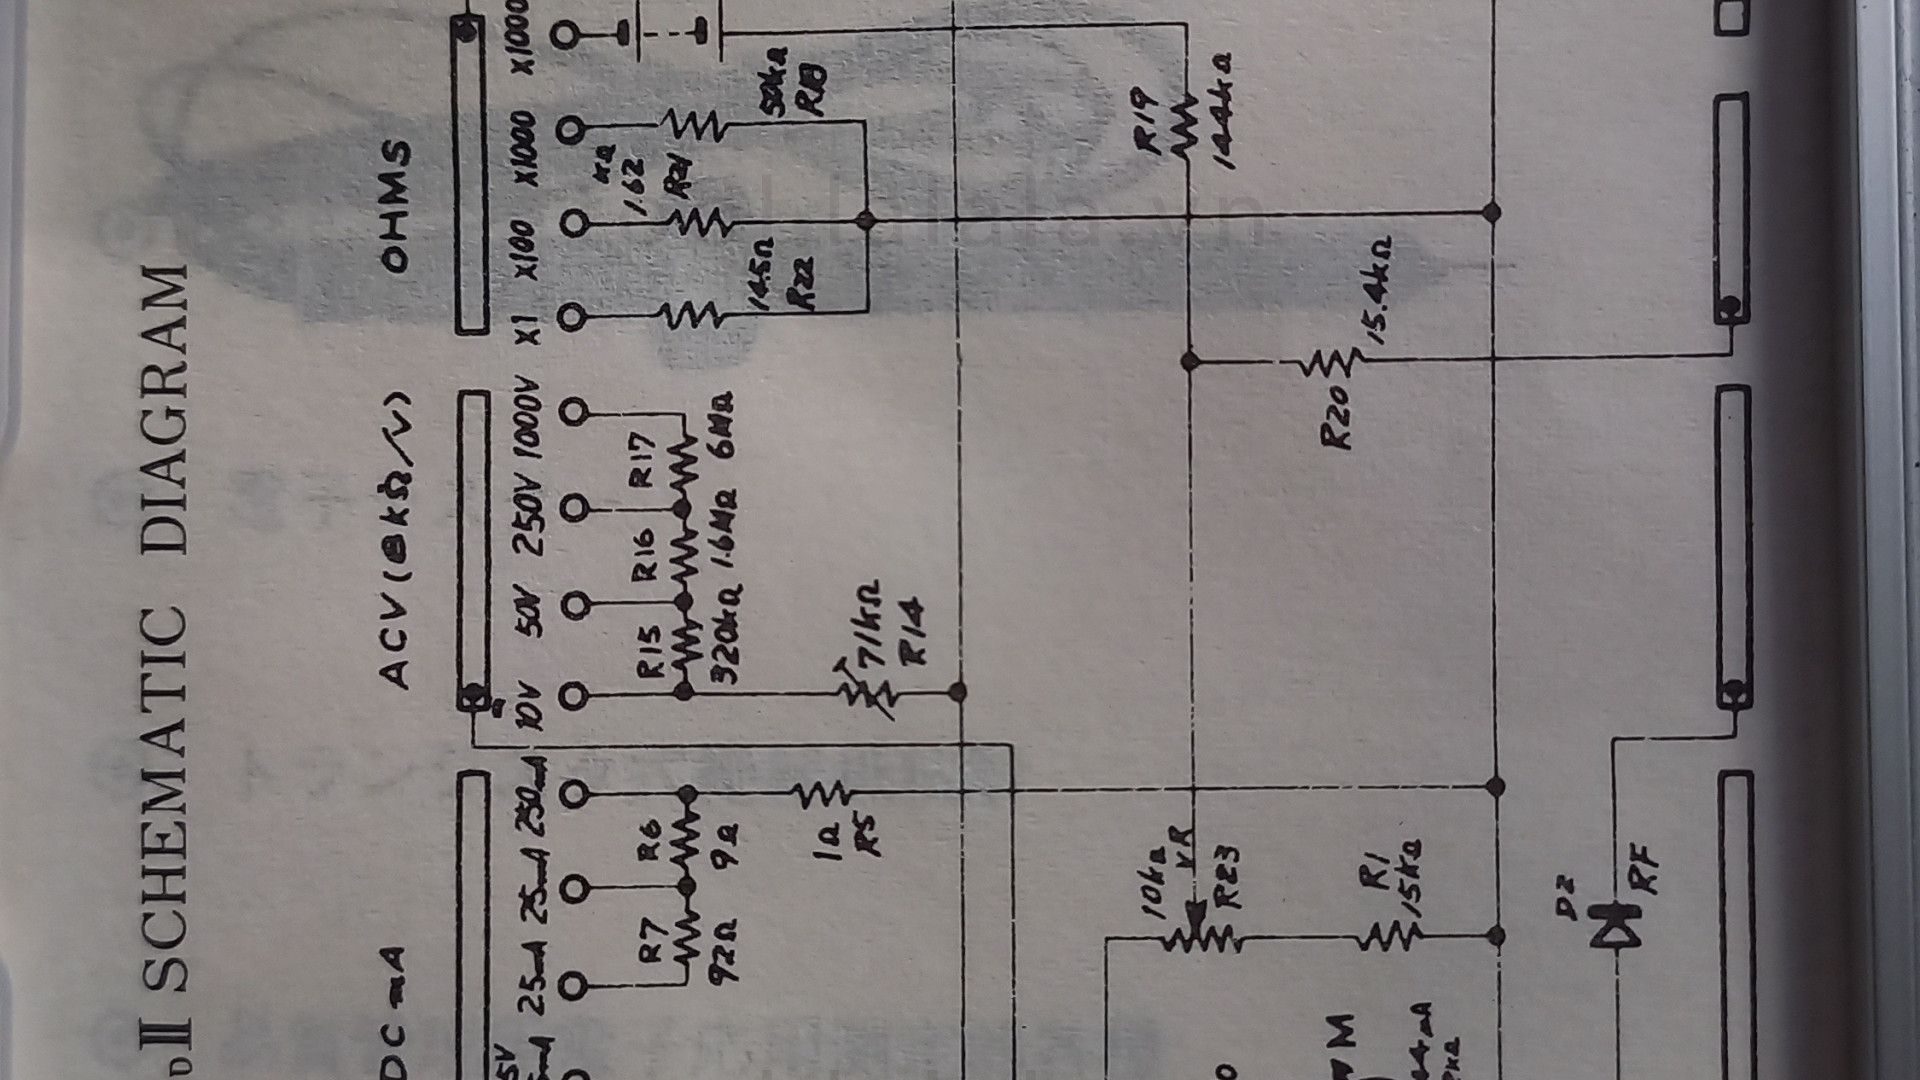 DⅡ SCHEMATIC DIAGRAM
DC mA
ACV (8kΩ/V)
OHMS
25mA 25mA 250mA
10V 50V 250V 1000V
X1 X100 X1000 X1000
R7
92Ω
R6
9Ω
1Ω
R5
R15
320kΩ
R16
1.6MΩ
R17
6MΩ
71kΩ
R14
145Ω
R22
kΩ
1.62
R21
R18
R19
144kΩ
R20
15.4kΩ
10kΩ
VR
R23
R1
15kΩ
D2
RF